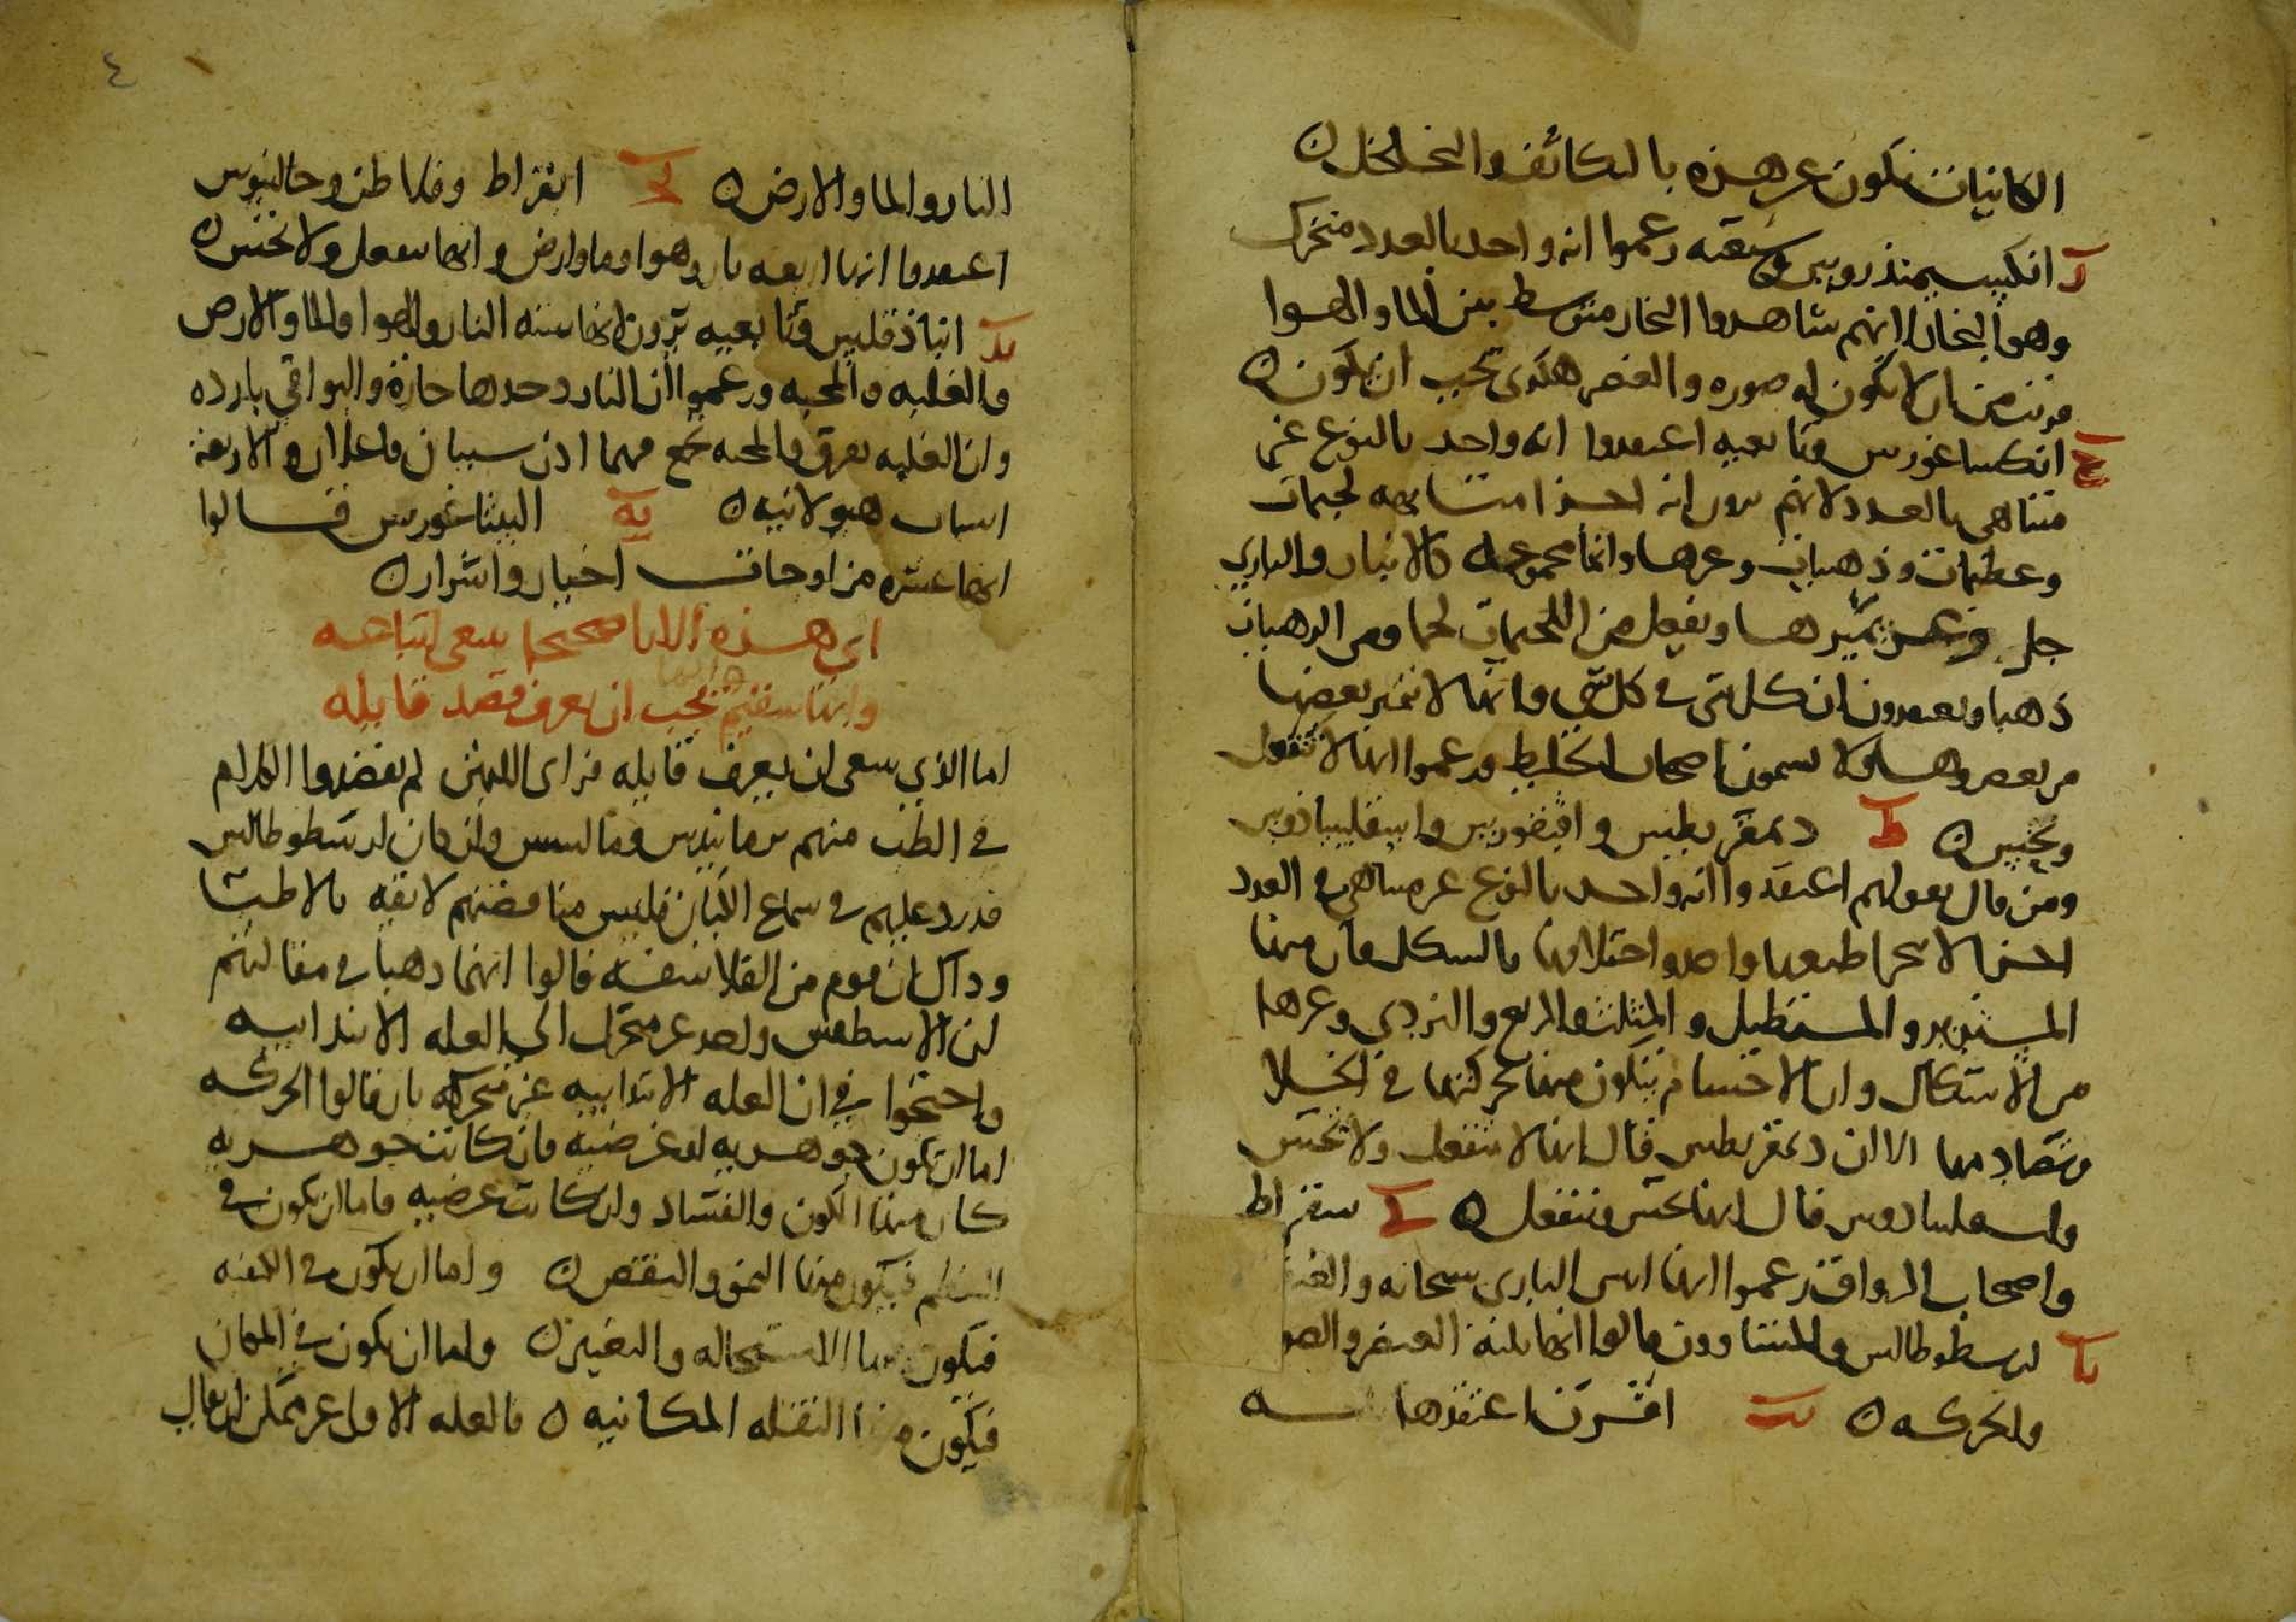 الكائنات تتكون عن هذه بالتكاثف والتخلخل ن
ز انكسيمندروس وشيعته زعموا انه واحد بالعدد متحرك
وهو البخار لانهم شاهدوا البخار متوسط بين الما والهوا
من ان لا يكون له صوره والعنصر هكذى يجب ان يكون ن
ح انكساغورس وتابعيه اعتقدوا انه واحد بالنوع غير
متناهى بالعدد لانهم يرون انه اجزا متشابهه لحيمات
وعظيمات وذهبيات وغيرها وانها مجموعه والبارى
جل وعز يميزها ويفعل من اللحيمات لحما ومن الذهبيات
ذهبا ويعتقدون ان كل شى فى كل شى وانها لا تميز بعضها
من بعض وهاولا يسمون اصحاب الخليط وزعموا انها لا تنفعل
وتحس ن ط ديمقريطس وافيقورس واسقليبيادوس
ومن قال بقولهم اعتقدوا انه واحد بالنوع غير متناهى فى العدد
اجزا لا تتجزا طبيعتها واحده واختلافها بالشكل فان منها
المستدير والمستطيل والمثلث والمربع والنردى وغيرها
من الاشكال وان الاجسام يتكون منها بحركتها فى الخلا
وتصادمها الا ان ديمقريطس قال انها لا تنفعل ولا تحس
واسقليبيادوس قال انها تحس وتنفعل ن ى سقراط
واصحاب الرواق زعموا انها اثنين البارى سبحانه والعنصر
يا ارسطوطالس والمشاوون قالوا انها ثلثه العنصر والصو
والحركه ن يب اعتقدها
النار والما والارض ن يج ابقراط وفلاطن وجالينوس
اعتقدوا انها اربعه نار وهوا وما وارض وانها تنفعل ولا تحس ن
يد انباذقليس وتابعيه يرون انها سته النار والهوا والما والارض
والغلبه والمحبه وزعموا ان النار وحدها حاره والبواقى بارده
وان الغلبه تفرق والمحبه تجمع فهما اذن سببان فاعلان والاربعه
اسباب هيولانيه ن يه البيثاغورس قالوا
انها عشره مزاوجات اخيار واشرار ن
اى هذه الارا صحيحا ينبغى اتباعه
وايها سقيم يجب ان يعرف فقصد قايله
اما الذى ينبغى ان يعرف قايله فراى اللذين لم يقصدوا الكلام
فى الطب منهم برمانيدس ومالسس وان كان ارسطوطالس
قد رد عليهم فى سماع الكيان فليس مناقضتهم لايقه بالاطبا
وذاك ان قوم من الفلاسفه قالوا انهما ذهبا فى مقالتهم
ان الاسطقس واحد غير متحرك الى العله الابتداييه
واحتجوا فى ان العله الابتداييه غير متحركه بان قالوا الحركه
اما ان تكون جوهريه او عرضيه فان كانت جوهريه
كان منها الكون والفساد وان كانت عرضيه فاما ان يكون فى
فيكون منها النمو والنقص ن واما ان يكون فى الكيفيه
فيكون منها الاستحاله والتغير ن واما ان يكون فى المكان
فيكون منها النقله المكانيه ن فالعله الاولى غير ممكن ان يقال
٤